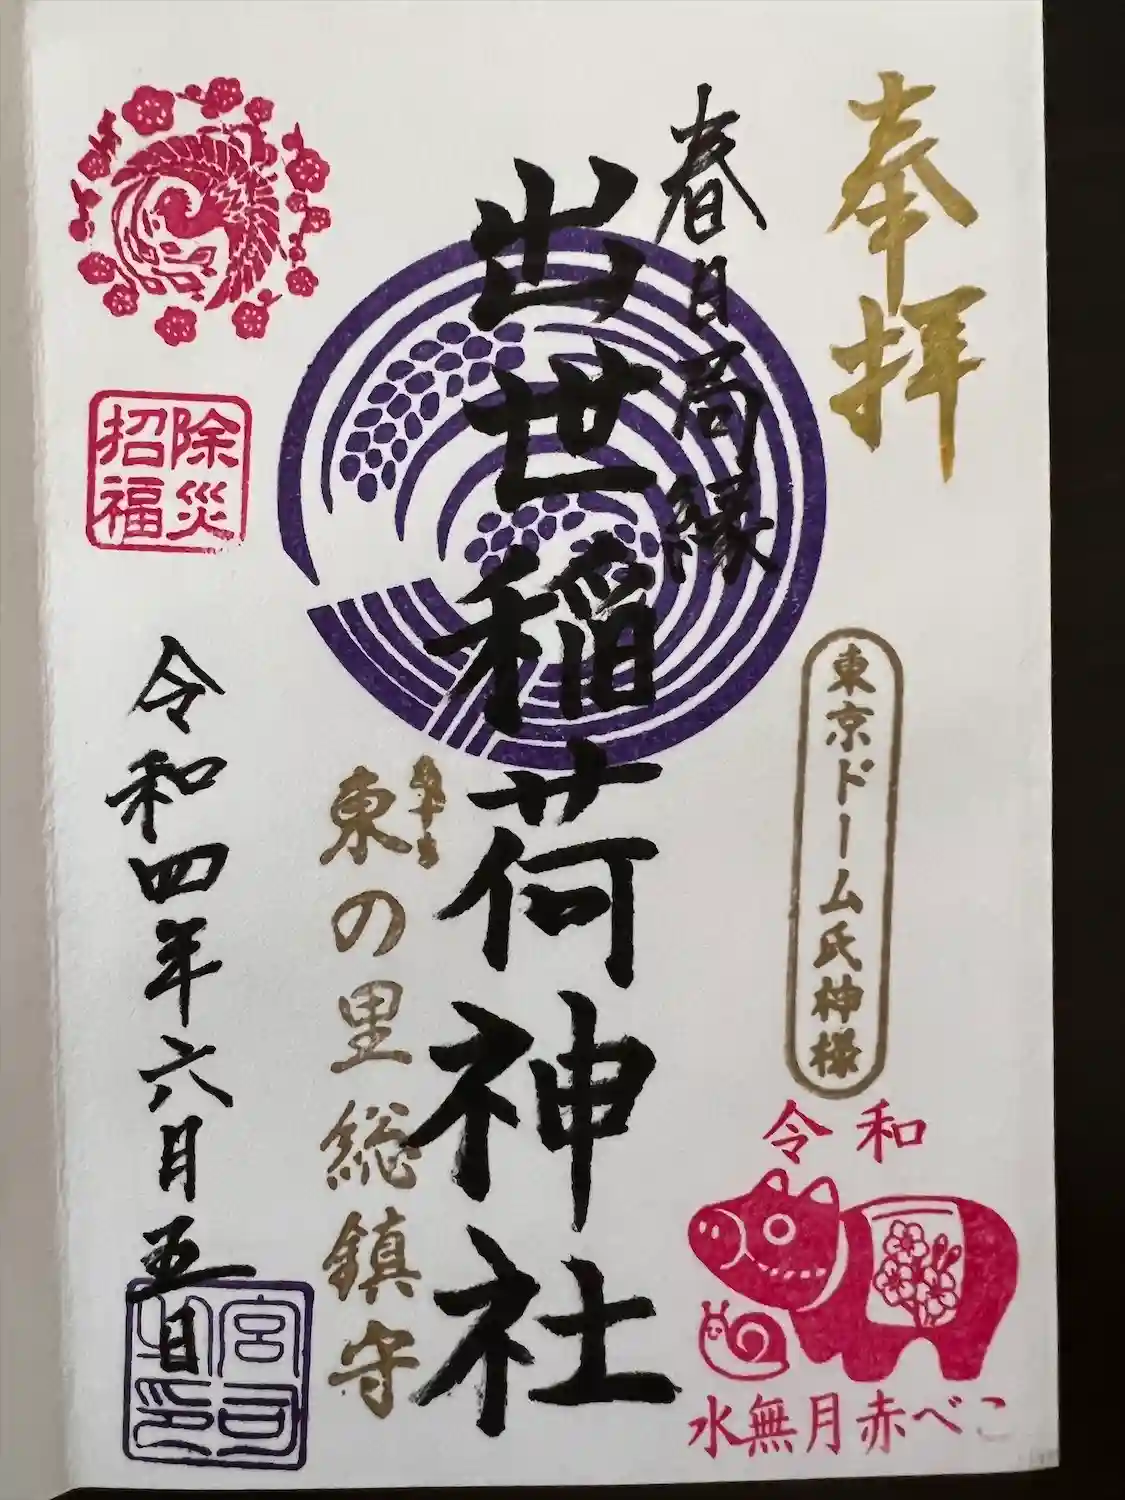 奉拝
東京ドーム氏神様
令和
水無月赤べこ
春日局縁
出世稲荷神社
あずま
東の里総鎮守
除災
招福
令和四年六月五日
宮司
之印